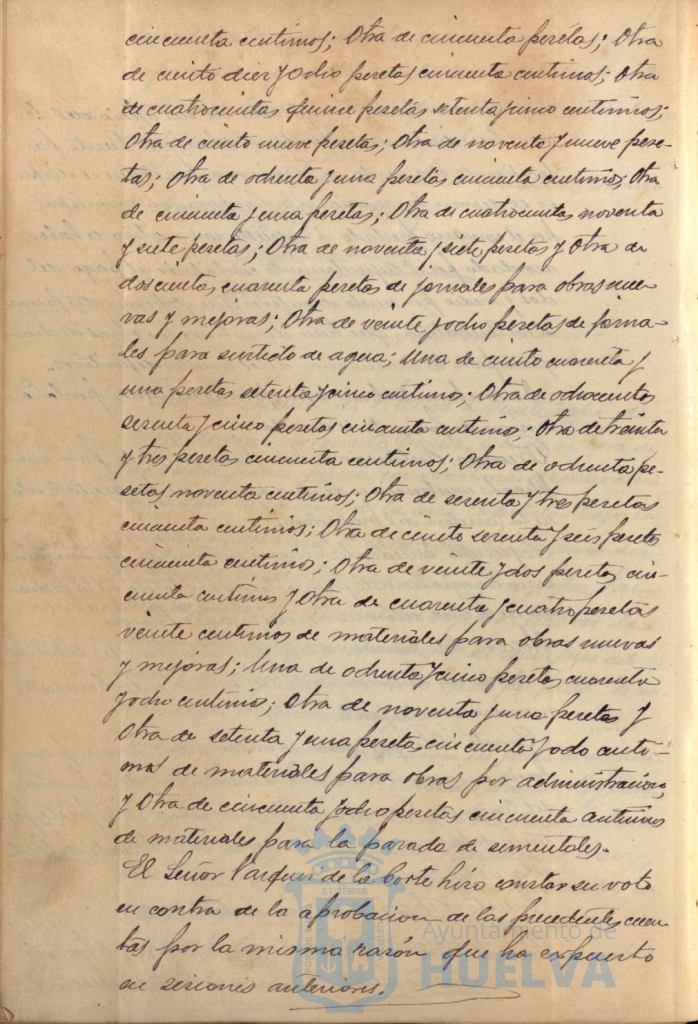 cincuenta centimos; Otra de cincuenta pesetas; Otra
de ciento diez y ocho pesetas cincuenta centimos; Otra
de cuatrocientas quince pesetas setenta y cinco centimos;
Otra de ciento nueve pesetas; Otra de noventa y nueve pese-
tas; Otra de ochenta y una pesetas cincuenta centimos; Otra
de cincuenta y una pesetas; Otra de cuatrocientas noventa
y siete pesetas; Otra de noventa y siete pesetas y Otra de
doscientas cuarenta pesetas de jornales para obras nue-
vas y mejoras; Otra de veinte y ocho pesetas de jorna-
les para surtido de agua; Una de ciento cuarenta y
una pesetas setenta y cinco centimos; Otra de ochocientas
sesenta y cinco pesetas cincuenta centimos; Otra de treinta
y tres pesetas cincuenta centimos; Otra de ochenta pe-
setas noventa centimos; Otra de sesenta y tres pesetas
cincuenta centimos; Otra de ciento sesenta y seis pesetas
cincuenta centimos; Otra de veinte y dos pesetas cin-
cuenta centimos y Otra de cuarenta y cuatro pesetas
veinte centimos de materiales para obras nuevas
y mejoras; Una de ochenta y cinco pesetas cuarenta
y ocho centimos; Otra de noventa y una pesetas y
Otra de setenta y una peseta cincuenta y ocho centi-
mos de materiales para obras por administracion,
y Otra de cincuenta y ocho pesetas cincuenta centimos
de materiales para la parada de sementales.
El Señor Vazquez de la Corte hizo constar su voto
en contra de la aprobacion de las precedentes cuen-
tas por la misma razón que ha expuesto
en sesiones anteriores.
Ayuntamiento de
HUELVA